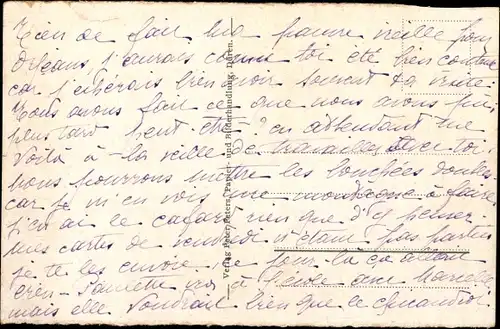 Rien de fait ma pauvre vieille pour
Orléans, j'aurais comme toi été bien contente
car j'espérais bien avoir souvent ta visite.
Nous avons fait ce que nous avons pu
plus tard peut-être? en attendant me
voilà à la veille de travailler avec toi.
nous pourrons mettre les bouchées doubles
car je m'en vois une montagne à faire
j'en ai le cafard rien que d'y penser
mes cartes de vendredi n'étant pas parties
je te les envoie. ce jour là ça allait
bien - Paulette va à l'école avec Marcelle
mais elle voudrait bien que le
Verlag Peter Peters, Papier- und Bilderhandlung, Düren.